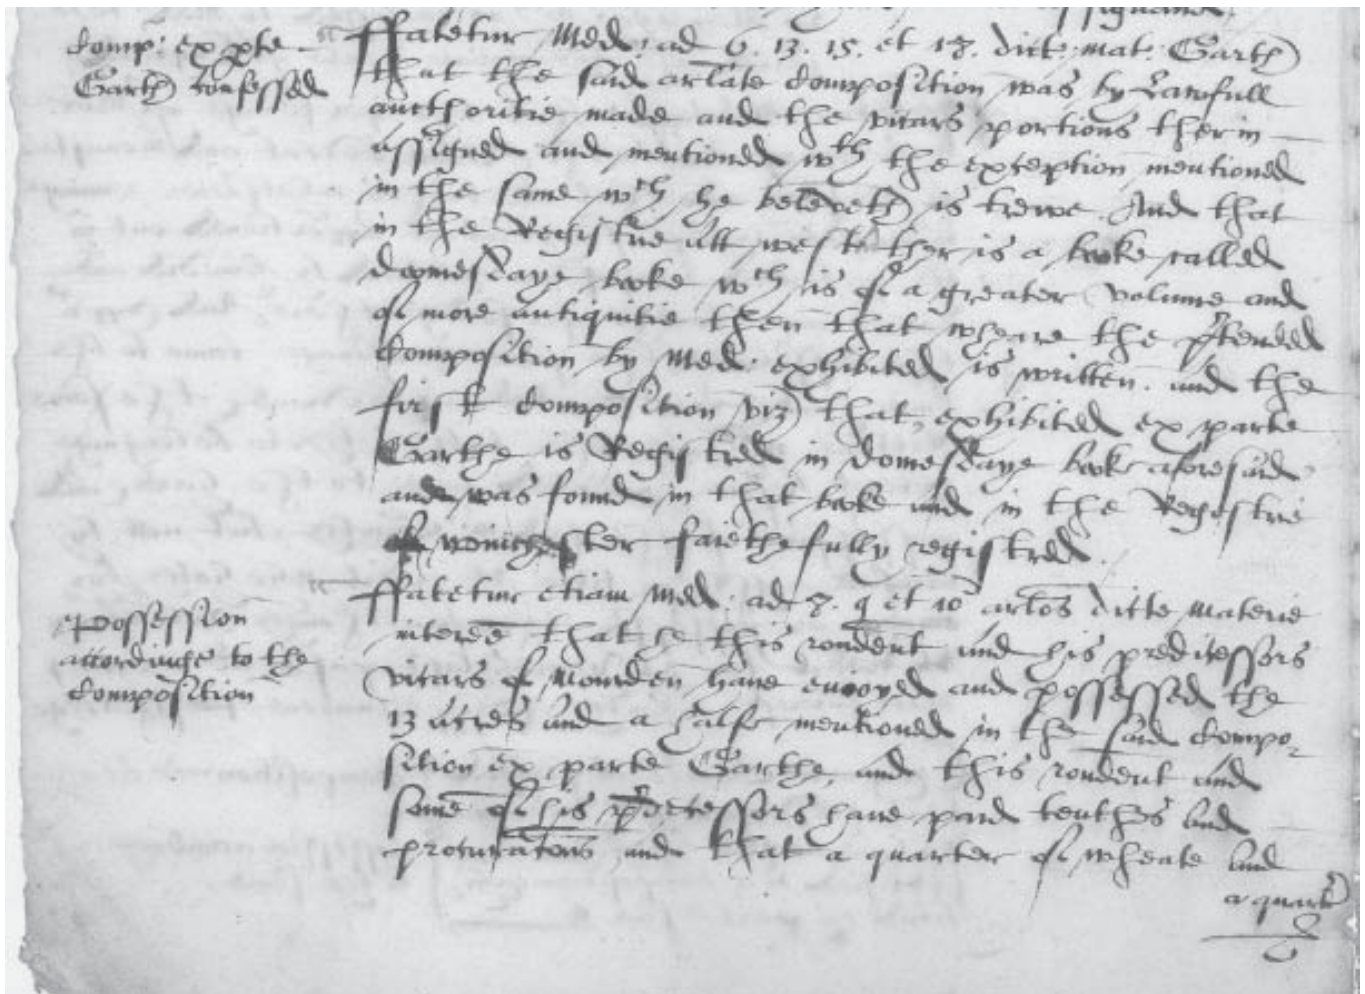 Comp: ex pte
Garth confessed
ffatetur Med: ad 6. 13. 15. et 18. dicte mat: Garth
that the said arlate Composition was by Lawfull
aucthoritie made and the vicars portions therin
assigned and mentioned wth the exception mentioned
in the same wch he beleveth is trewe. And that
in the Registrie att ther is a booke called
doomesdaye booke wch is of a greater volume and
of more antiquitie then that wheare the ptended
Composition by Med: exhibited is written. and the
first Composition viz that exhibited ex parte
Garthe is Registred in domesdaye booke aforesaid
and was found in that booke and in the Registrie
of winchester faiethefully registred.
possession
accordinge to the
Composition
ffatetur etiam Med: ad 7. 9 et 10 arlos dicte materie
that he this rondent and his predicessors
vicars of Mourden have enioyed and possessed the
13 acres and a halfe mentioned in the said Compo-
sition ex parte Garthe, and this rondent and
some of his pdecessors have paid tenthes and
procuracons and that a quarter of wheate and
a quartr